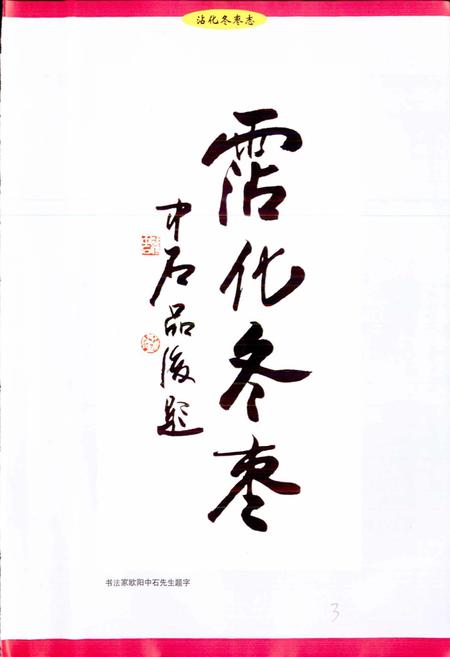 沾化冬枣志
霑化冬枣
中石品后题
书法家欧阳中石先生题字
3